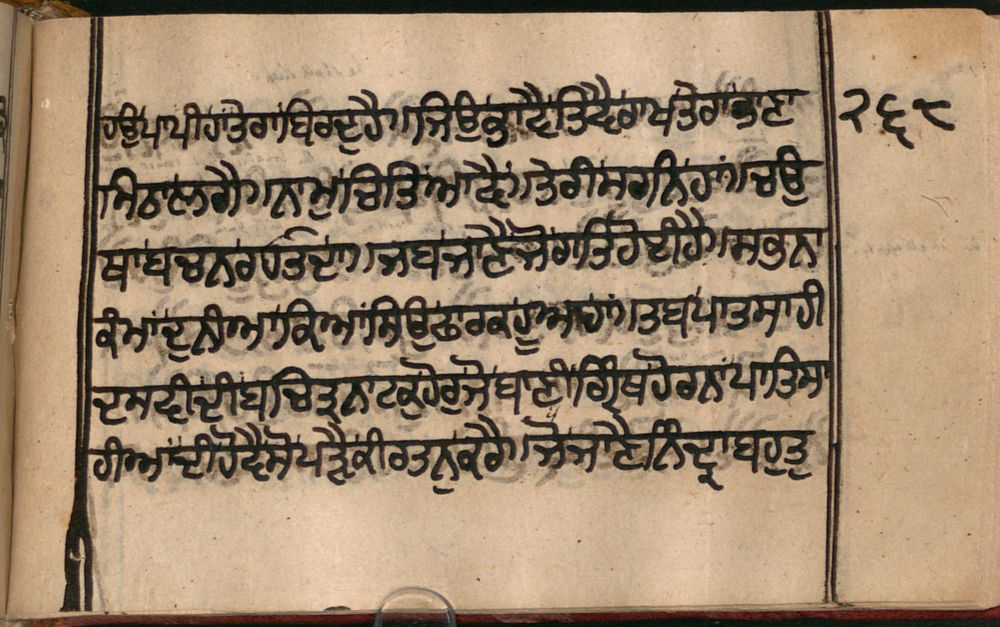 ਹਉਪਾਪੀਹਾਤੇਰਾਬਿਰਦੁਹੈ॥ਜਿਉਭਾਵੈਤਿਵੈਰਾਖਤੇਰਾਭਾਣਾ ੨੬੮
ਮਿਠਾਲਗੈ॥ਨਾਮੁਚਿਤਿਆਵੈ॥ਤੇਰੀਸਰਨਿਹਾਂ॥ਚਉ
ਥਾਬਚਨਰਹਤਦਾ॥ਜਬਜਾਣੈਜੋਰਾਤਿਹੋਈਹੈ॥ਸਭਨਾ
ਕੰਮਾਂਦੁਨੀਆਕਿਆਂਸਿਉਫਾਰਕਹੂਆਹਾਂ॥ਤਬਪਾਤਸਾਹੀ
ਦਸਵੀਦੀਬਚਿਤ੍ਰਨਾਟਕੁਹੋਰੁਜੋਬਾਣੀਗ੍ਰਿੰਥਹੋਰਨਾਂਪਾਤਿਸਾ
ਹੀਆਂਦੀਹੋਵੈਸੋਪੜੈਕੀਰਤਨੁਕਰੈ॥ਜੋਜਾਣੈਨਿੰਦ੍ਰਾਬਹੁਤੁ